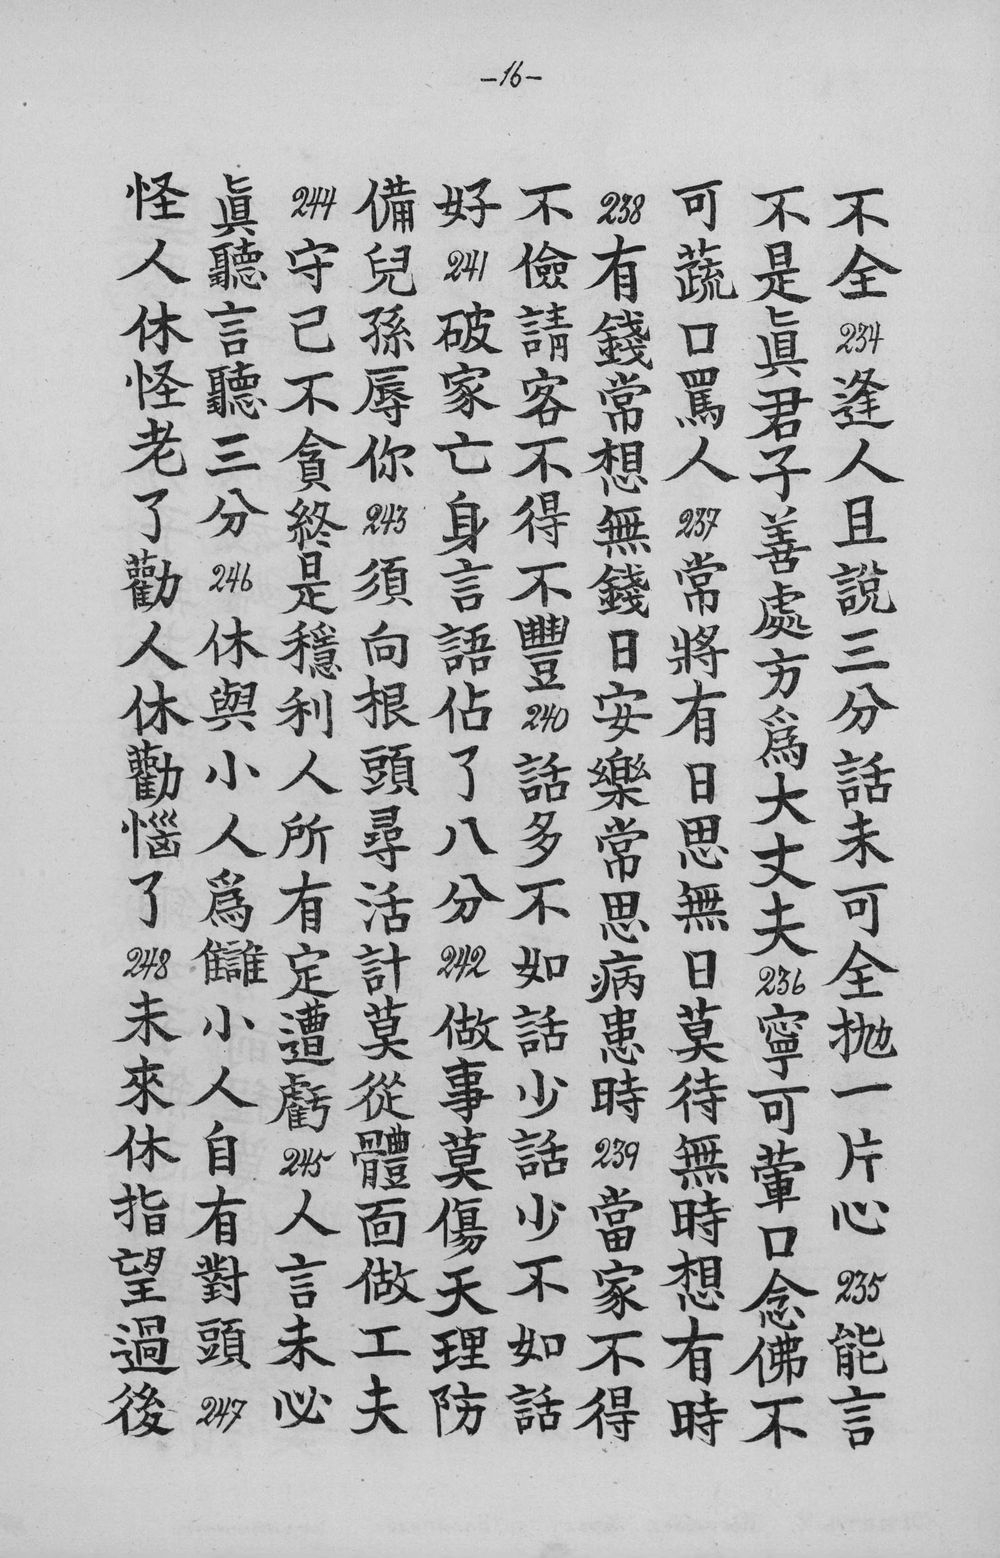 -16-
不全234逢人且說三分話未可全拋一片心235能言
不是眞君子善處方爲大丈夫236寧可葷口念佛不
可蔬口罵人237常將有日思無日莫待無時想有時
238有錢常想無錢日安樂常思病患時239當家不得
不儉請客不得不豐240話多不如話少話少不如話
好241破家亡身言語佔了八分242做事莫傷天理防
備兒孫辱你243須向根頭尋活計莫從體面做工夫
244守己不貪終是穩利人所有定遭虧245人言未必
眞聽言聽三分246休與小人爲讎小人自有對頭247
怪人休怪老了勸人休勸惱了248未來休指望過後